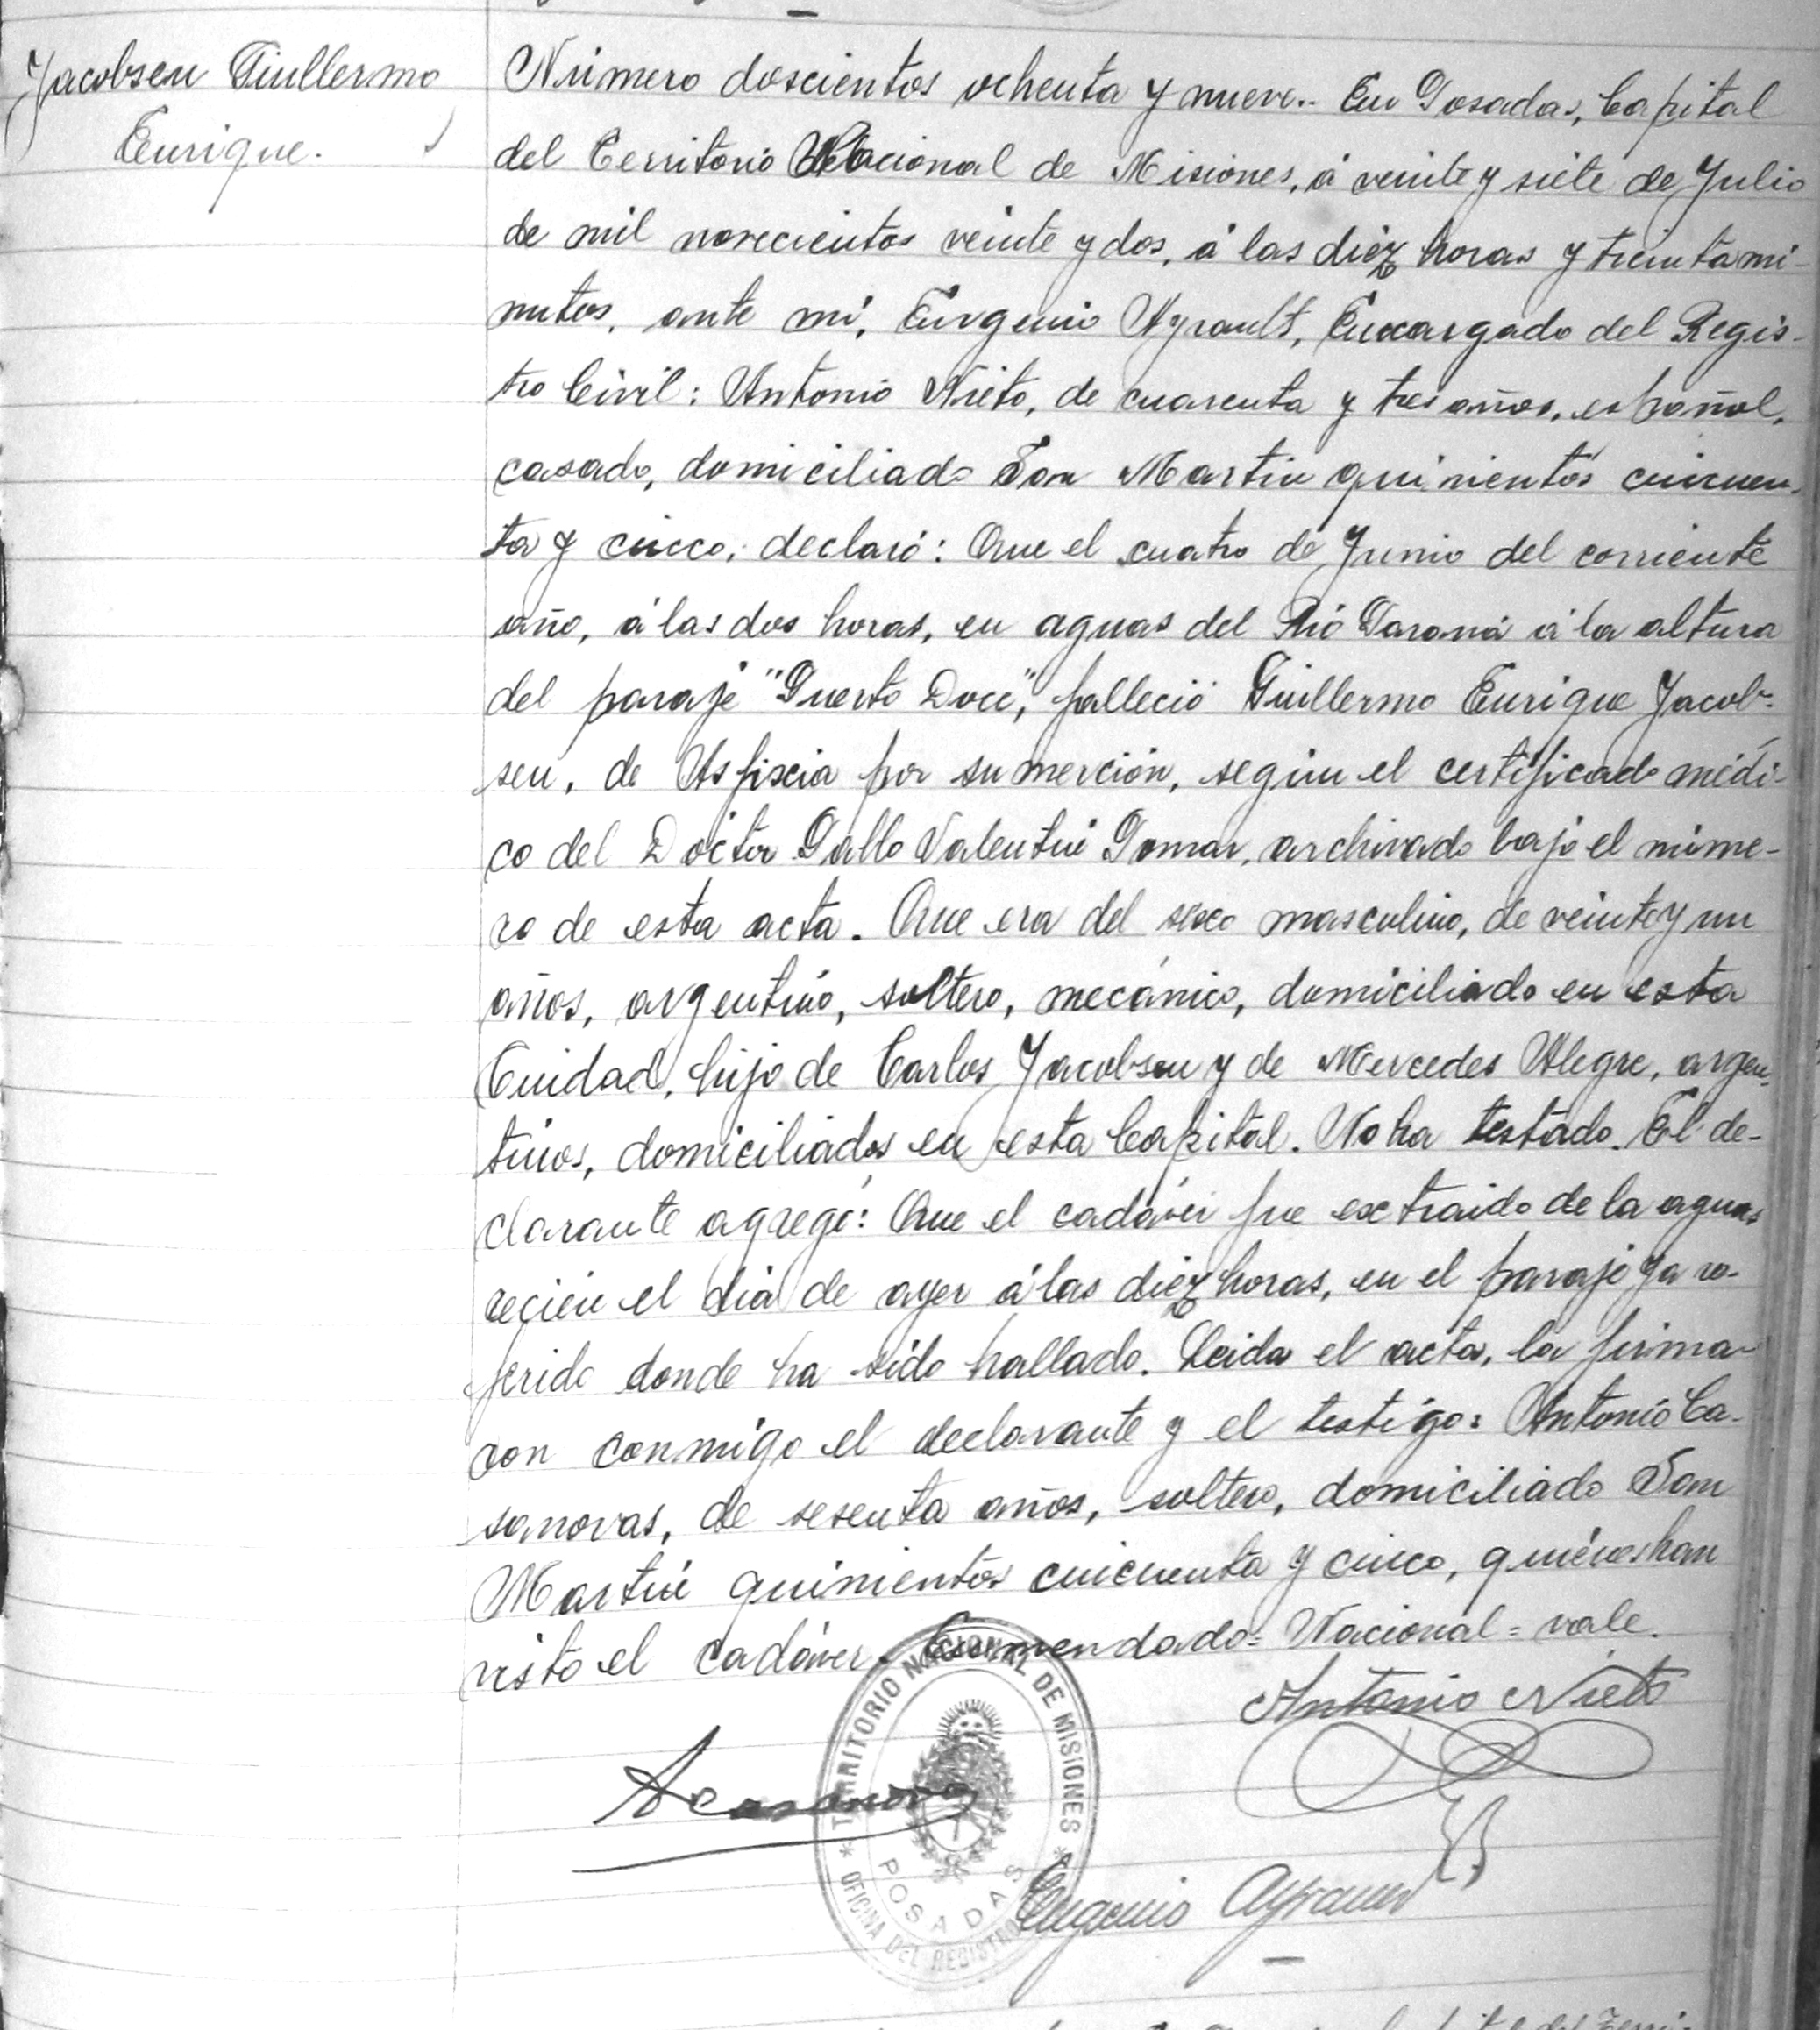 Jacobsen Guillermo
Enrique.
Número doscientos ochenta y nueve.. En Posadas, Capital
del Territorio Nacional de Misiones, á veinte y siete de Julio
de mil novecientos veinte y dos, á las diez horas y treinta mi-
nutos, ante mí, Eugenio Ayrault, Encargado del Regis-
tro Civil: Antonio Nieto, de cuarenta y tres años, español,
casado, domiciliado San Martin quinientos cincuen-
ta y cinco, declaró: Que el cuatro de Junio del corriente
año, á las dos horas, en aguas del Rio Paraná á la altura
del paraje "Puerto Doce", falleció Guillermo Enrique Jacob-
sen, de Asfixia por sumerción, según el certificado médi-
co del Doctor Gallo Valentin Gomar, archivado bajo el núme-
ro de esta acta. Que era del sexo masculino, de veinte y un
años, argentino, soltero, mecánico, domiciliado en esta
Ciudad, hijo de Carlos Jacobsen y de Mercedes Alegre, argen-
tinos, domiciliados en esta Capital. No ha testado. El de-
clarante agregó: Que el cadáver fue extraido de la aguas
recien el día de ayer á las diez horas, en el paraje ya re-
ferido donde ha sido hallado. Leida el acta, la firma-
ron conmigo el declarante y el testigo: Antonio Ca-
sanovas, de sesenta años, soltero, domiciliado San
Martin quinientos cincuenta y cinco, quiénes han
visto el cadáver. Enmendado= Nacional = vale.
Antonio Nieto
A Casanova
Eugenio Ayrault
TERRITORIO NACIONAL DE MISIONES
POSADAS
OFICINA DEL REGISTRO